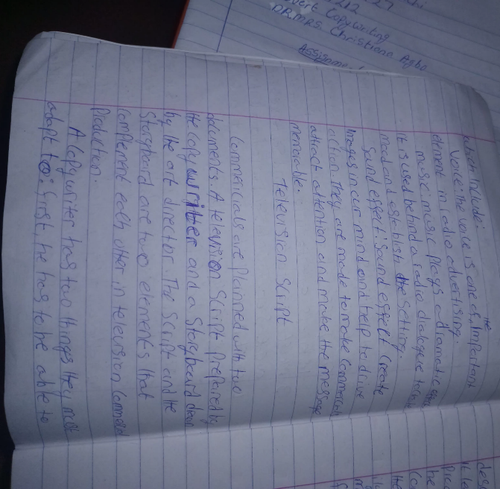 which include:
Voice: the voice is one of the important
element in radio advertising
music: music plays a dramatic effect
it is used behind a radio dialogue to
mood and establish the setting.
Sound effect: sound effect create
images in our mind and help to drive
action. They are made to make commercial
attract attention and make the message
memorable.
Television Script
Commercials are planned with two
documents. A television script prepared by
the copywriter and a storyboard drawn
by the art director. The script and the
storyboard are two elements that
complement each other in television commercial
production.
A copywriter has two things they must
adapt to: first, he has to be able to
212
Copywriting
Christiana Agbo